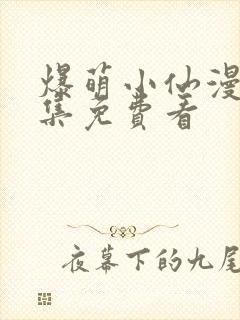 爆萌小仙漫
集免費看
夜幕下的九尾